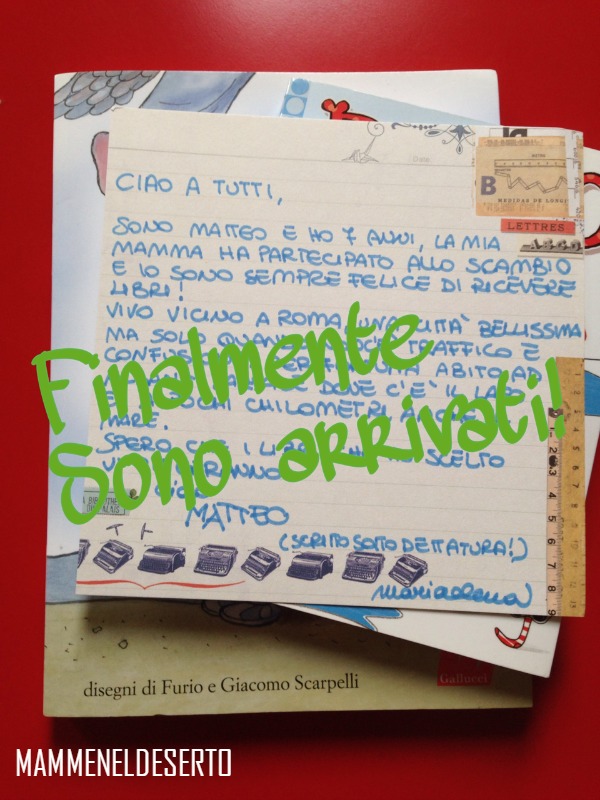 CIAO A TUTTI,
SONO MATTEO E HO 7 ANNI, LA MIA
MAMMA HA PARTECIPATO ALLO SCAMBIO
E IO SONO SEMPRE FELICE DI RICEVERE
LIBRI!
VIVO VICINO A ROMA, UNA CITTÀ BELLISSIMA
MA SOLO TRAFFICO E
ABITO AD
DOVE C'È IL
CHILOMETRI
MARE.
SPERO CHE I SCELTO
MATTEO
(SCRITTO SOTTO DETTATURA!)
Finalmente
Sono arrivati!
B
MEDIDAS DE
LETTRES
disegni di Furio e Giacomo Scarpelli
Gallucci
MAMMENELDESERTO